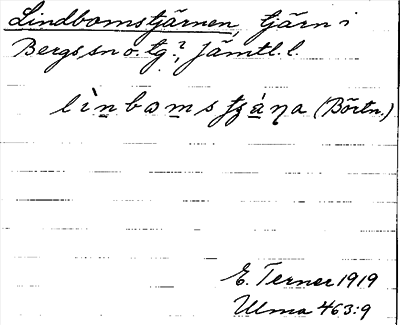 Lindbomstjärnen, tjärn i
Bergs sn o. tg?, Jämtl. l.
lìnbɷmstʒäŋa (Börtn.)
E. Terner 1919
Ulma 463:9